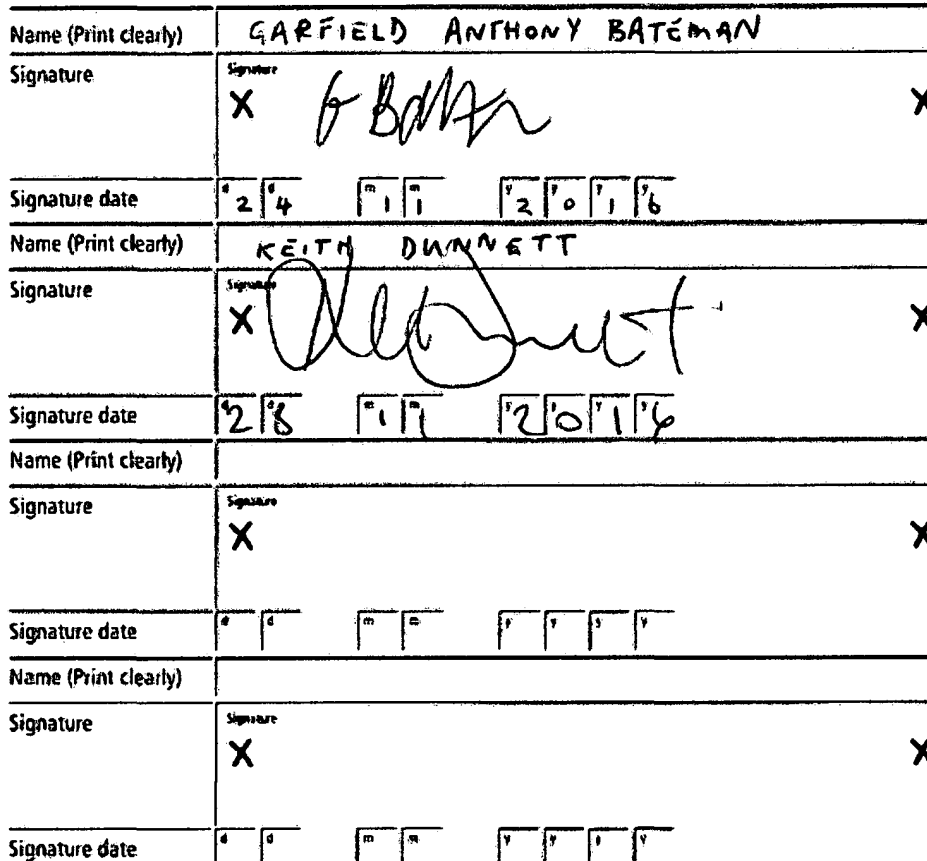 Name (Print clearly) GARFIELD ANTHONY BATEMAN
Signature Signature
X G Bateman X
Signature date d 2 d 4 m 1 m 1 y 2 y 0 y 1 y 6
Name (Print clearly) KEITH DUNNETT
Signature Signature
X X
Signature date d 2 d 8 m 1 m 1 y 2 y 0 y 1 y 6
Name (Print clearly)
Signature Signature
X X
Signature date d d m m y y y y
Name (Print clearly)
Signature Signature
X X
Signature date d d m m y y y y